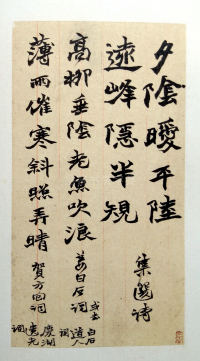 夕陰曖平陸
遠峰隱半規
集選詩
高柳垂陰老魚吹浪
姜白石詞
或書白石道人詞
薄雨催寒斜照弄晴
賀方回詞
慶湖遺老詞